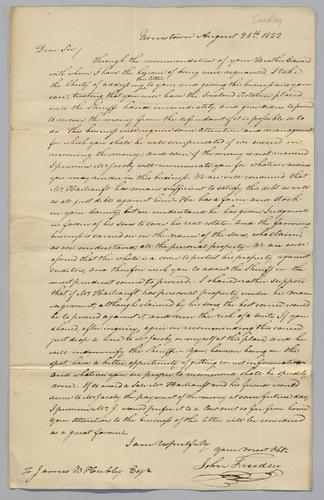 Freedley
Norristown August 25th 1822
Dear Sir,
Through the recommendation of your Brother Edward
with whom I have the honour of being well acquainted I take
the liberty of addressing the letter to you and giving this business into your
care trusting that you will have the Inclosed placed
into the Sheriff's hands immediately, and give directions to proceed
to recover the money from the defendant if it is possible so to
do. This business will require some attention and management
for which you shall be well compensated if we succeed in
receiving the money, and even if the money is not received
I presume Mr Jacoby will remunerate you for whatever services
you may render in this business. We are well convinced that
Mr has means sufficient to satisfy this debt as well
as all just debts against him. He has a farm and Stock
in your County but we understand he has given Judgments
in favour of his sons to cover his real estate and the farming
business is carried on in the name of the sons, who claim,
as we understand, all the personal property. We are well
that the whole is a cover to protect his property against
creditors, and therefore wish you to advise the Sheriff in the
most prudent course to proceed. I should rather suppose
that if Mr has personal property under his man-
agement, although claimed by his sons the best course would
be to proceed against it and run the risk of a suit. If you
should after enquiry, agree in recommending this course
just drop a line to Mr Jacoby or myself at this place and he
will indemnify the Sheriff. You however being on the
spot have a better opportunity of getting correct information
and whatever you may propose to recommend shall be speedily
done. If to avoid a Sale Mr and his friend would
secure to Mr Jacoby the payment of the money at some future day
I presume Mr J. would prefer it to a law suit so far from home
Your attention to the business of this letter will be considered
as a great favour.
I am respectfully
your most Obt.
John Freedley
To James B Hubley Esqr